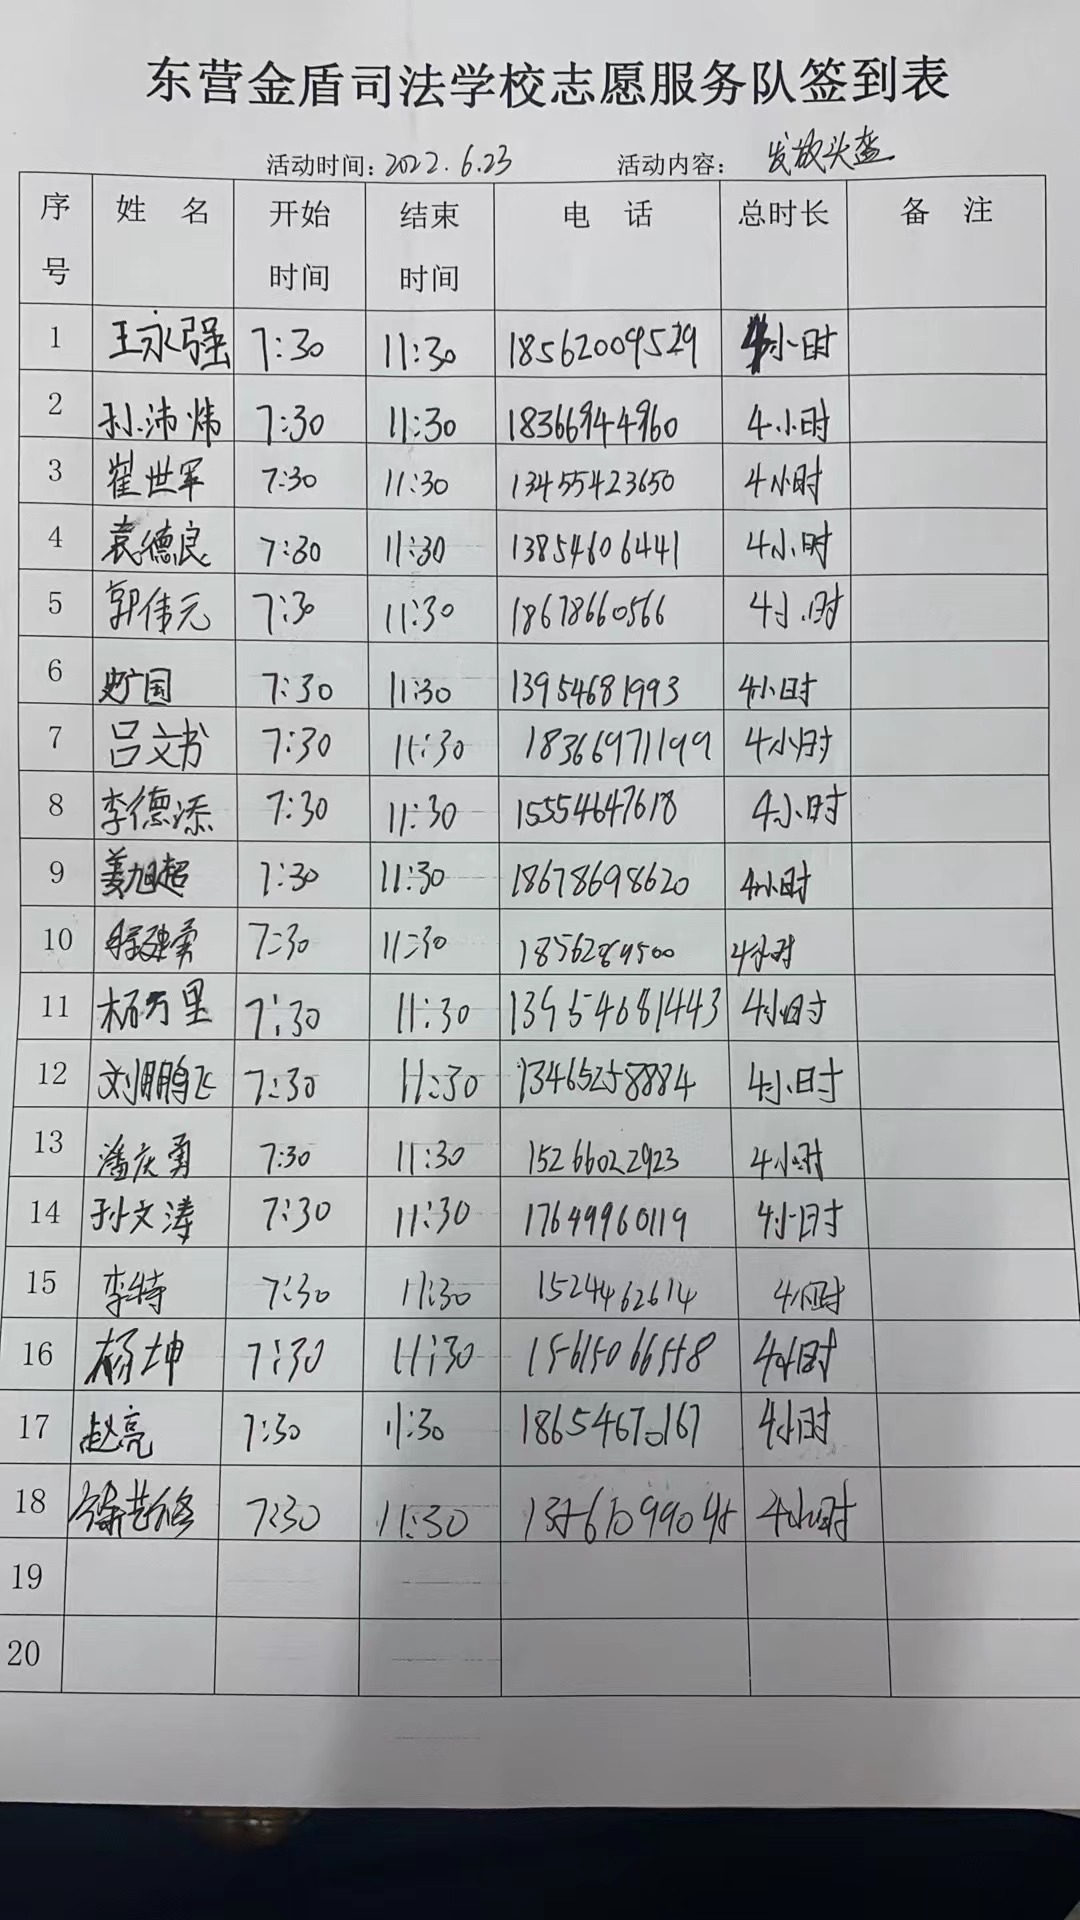 东营金盾司法学校志愿服务队签到表
活动时间：2022.6.23 活动内容： 发放头盔
序号 姓 名 开始时间 结束时间 电 话 总时长 备 注
1 王永强 7:30 11:30 18562009529 4小时
2 孙沛炜 7:30 11:30 18366944960 4小时
3 崔世军 7:30 11:30 13455423650 4小时
4 袁德良 7:30 11:30 13854606441 4小时
5 郭伟元 7:30 11:30 18678660566 4小时
6 史广国 7:30 11:30 13954681993 4小时
7 吕文书 7:30 11:30 18366971199 4小时
8 李德添 7:30 11:30 15554647618 4小时
9 姜旭超 7:30 11:30 18678698620 4小时
10 7:30 11:30 4小时
11 杨万里 7:30 11:30 13954681443 4小时
12 刘鹏飞 7:30 11:30 13465258884 4小时
13 潘庆勇 7:30 11:30 15266022923 4小时
14 孙文涛 7:30 11:30 17649960119 4小时
15 李特 7:30 11:30 1524462614 4小时
16 杨坤 7:30 11:30 15615066558 4小时
17 赵亮 7:30 11:30 18654670167 4小时
18 7:30 11:30 4小时
19
20